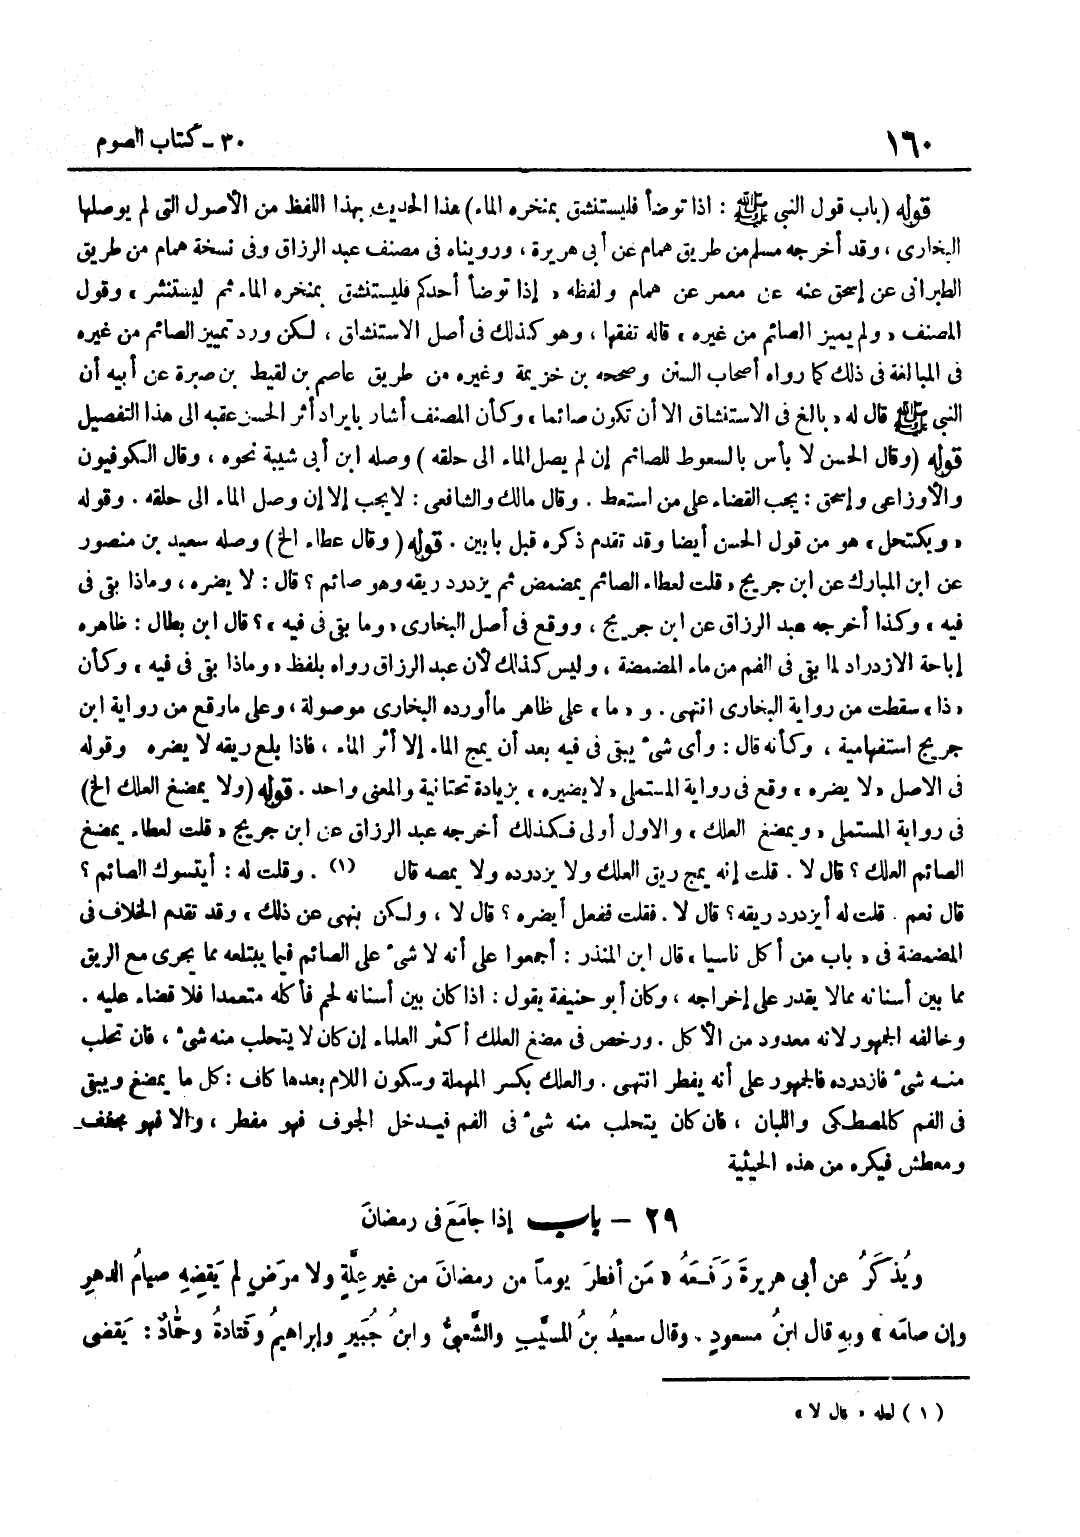 ١٦٠
٣٠ - كتاب الصوم
قوله (باب قول النبي ﷺ : اذا توضأ فليستنشق بمنخره الماء) هذا الحديث بهذا اللفظ من الأصول التى لم يوصلها
البخارى ، وقد أخرجه مسلم من طريق همام عن أبى هريرة ، ورويناه فى مصنف عبد الرزاق وفى نسخة همام من طريق
الطبرانى عن إسحق عنه عن معمر عن همام ولفظه « إذا توضأ أحدكم فليستنشق بمنخره الماء ثم ليستنثر » وقول
المصنف « ولم يميز الصائم من غيره » قاله تفقها ، وهو كذلك فى أصل الاستنشاق ، لكن ورد تمييز الصائم من غيره
فى المبالغة فى ذلك كما رواه أصحاب السنن وصححه بن خزيمة وغيره من طريق عاصم بن لقيط بن صبرة عن أبيه أن
النبى ﷺ قال له « بالغ فى الاستنشاق الا أن تكون صائما » وكأن المصنف أشار بايراد أثر الحسن عقبه الى هذا التفصيل
قوله (وقال الحسن لا بأس بالسعوط للصائم إن لم يصل الماء الى حلقه) وصله ابن أبى شيبة نحوه ، وقال الكوفيون
والأوزاعى وإسحق : يجب القضاء على من استعط . وقال مالك والشافعى : لا يجب إلا إن وصل الماء الى حلقه . وقوله
« ويكتحل » هو من قول الحسن أيضا وقد تقدم ذكره قبل بابين . قوله (وقال عطاء الخ) وصله سعيد بن منصور
عن ابن المبارك عن ابن جريج « قلت لعطاء الصائم يمضمض ثم يزدرد ريقه وهو صائم ؟ قال : لا يضره ، وماذا بقى فى
فيه » وكذا أخرجه عبد الرزاق عن ابن جريج ، ووقع فى أصل البخارى « وما بقى فى فيه » ؟ قال ابن بطال : ظاهره
إباحة الازدراد لما بقى فى الفم من ماء المضمضة ، وليس كذلك لأن عبد الرزاق رواه بلفظ « وماذا بقى فى فيه » وكأن
« ذا » سقطت من رواية البخارى انتهى . و « ما » على ظاهر ما أورده البخارى موصولة ، وعلى ما وقع من رواية ابن
جريج استفهامية ، وكأنه قال : وأى شىء يبقى فى فيه بعد أن يمج الماء إلا أثر الماء ، فاذا بلع ريقه لا يضره وقوله
فى الاصل « لا يضره » وقع فى رواية المستملى « لا يضيره » بزيادة تحتانية والمعنى واحد . قوله (ولا يمضغ العلك الخ)
فى رواية المستملى « ويمضغ العلك » والاول أولى فكذلك أخرجه عبد الرزاق عن ابن جريج « قلت لعطاء يمضغ
الصائم العلك ؟ قال لا . قلت إنه يمج ريق العلك ولا يزدرده ولا يمصه قال (١) . وقلت له : أيتسوك الصائم ؟
قال نعم . قلت له أيزدرد ريقه ؟ قال لا . فقلت ففعل أيضره ؟ قال لا ، ولكن ينهى عن ذلك » وقد تقدم الخلاف فى
المضمضة فى « باب من أكل ناسيا » قال ابن المنذر : أجمعوا على أنه لا شىء على الصائم فيما يبتلعه مما يجرى مع الريق
مما بين أسنانه مما لا يقدر على إخراجه ، وكان أبو حنيفة يقول : اذا كان بين أسنانه لحم فأكله متعمدا فلا قضاء عليه .
وخالفه الجمهور لانه معدود من الأكل . ورخص فى مضغ العلك أكثر العلماء إن كان لا يتحلب منه شىء ، فان تحلب
منه شىء فازدرده فالجمهور على أنه يفطر انتهى . والعلك بكسر المهملة وسكون اللام بعدها كاف : كل ما يمضغ ويبقى
فى الفم كالمصطكى واللبان ، فان كان يتحلب منه شىء فى الفم فيدخل الجوف فهو مفطر ، والا فهو مجفف
ومعطش فيكره من هذه الحيثية
٢٩ - باب إذا جامَعَ فى رمضانَ
ويُذكَرُ عن أبى هريرةَ رَفَعَهُ « مَن أفطرَ يوماً من رمضانَ من غيرِ عِلَّةٍ ولا مرَضٍ لم يَقضِهِ صيامُ الدهرِ
وإن صامَه » وبهِ قال ابنُ مسعودٍ . وقال سعيدُ بنُ المسيَّبِ والشَّعبىُّ وابنُ جُبَيرٍ وإبراهيمُ وقَتادةُ وحمَّادٌ : يَقضى
(١) لعله « قال لا »